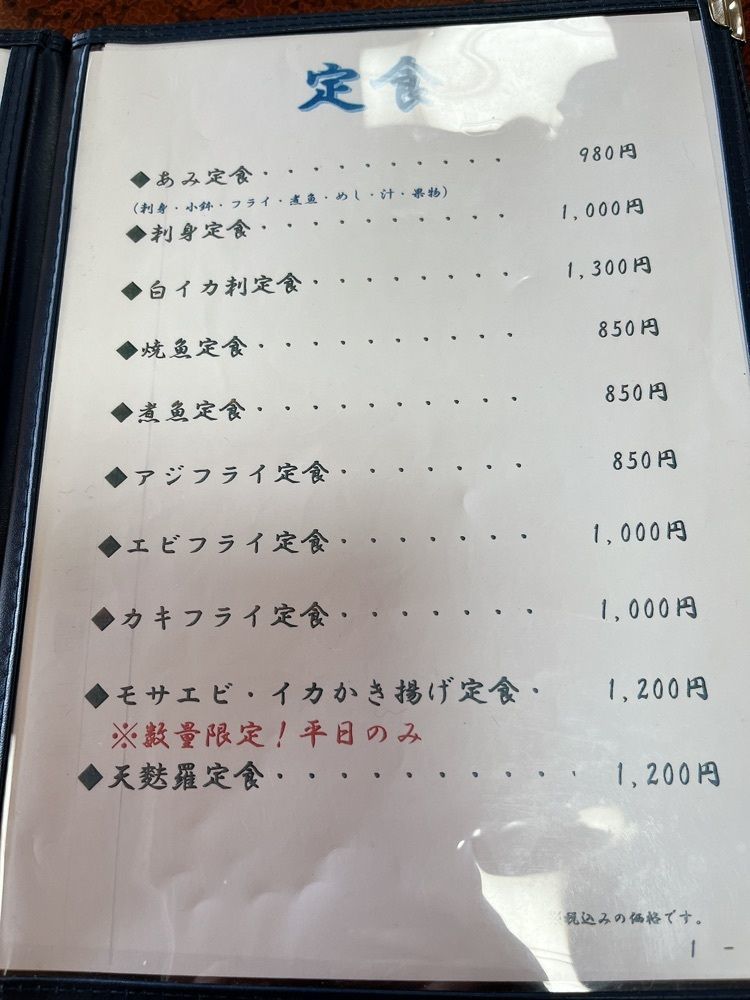 定食
◆あみ定食・・・・・・・・・・ 980円
(刺身・小鉢・フライ・煮魚・めし・汁・果物)
◆刺身定食・・・・・・・・・・ 1,000円
◆白イカ刺定食・・・・・・・・ 1,300円
◆焼魚定食・・・・・・・・・・ 850円
◆煮魚定食・・・・・・・・・・ 850円
◆アジフライ定食・・・・・・・ 850円
◆エビフライ定食・・・・・・・ 1,000円
◆カキフライ定食・・・・・・・ 1,000円
◆モサエビ・イカかき揚げ定食・ 1,200円
※数量限定！平日のみ
◆天麩羅定食・・・・・・・・・・・ 1,200円
※税込みの価格です。
1 -